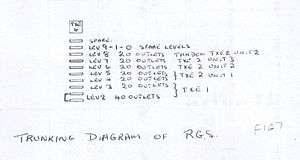 TXE
6
SPARE
LEV 9-1-0 SPARE LEVELS
LEV 8 20 OUTLETS TANDEM TXE 2 UNIT 2
LEV 7 20 OUTLETS TXE 2 UNIT 3
LEV 6 20 OUTLETS TXE 2 UNIT 2
LEV 5 20 OUTLETS } TXE 2 UNIT 1
LEV 4 20 OUTLETS
LEV 3 20 OUTLETS } TXE 1
LEV 2 40 OUTLETS
TRUNKING DIAGRAM OF R.G.S.
FIG 7